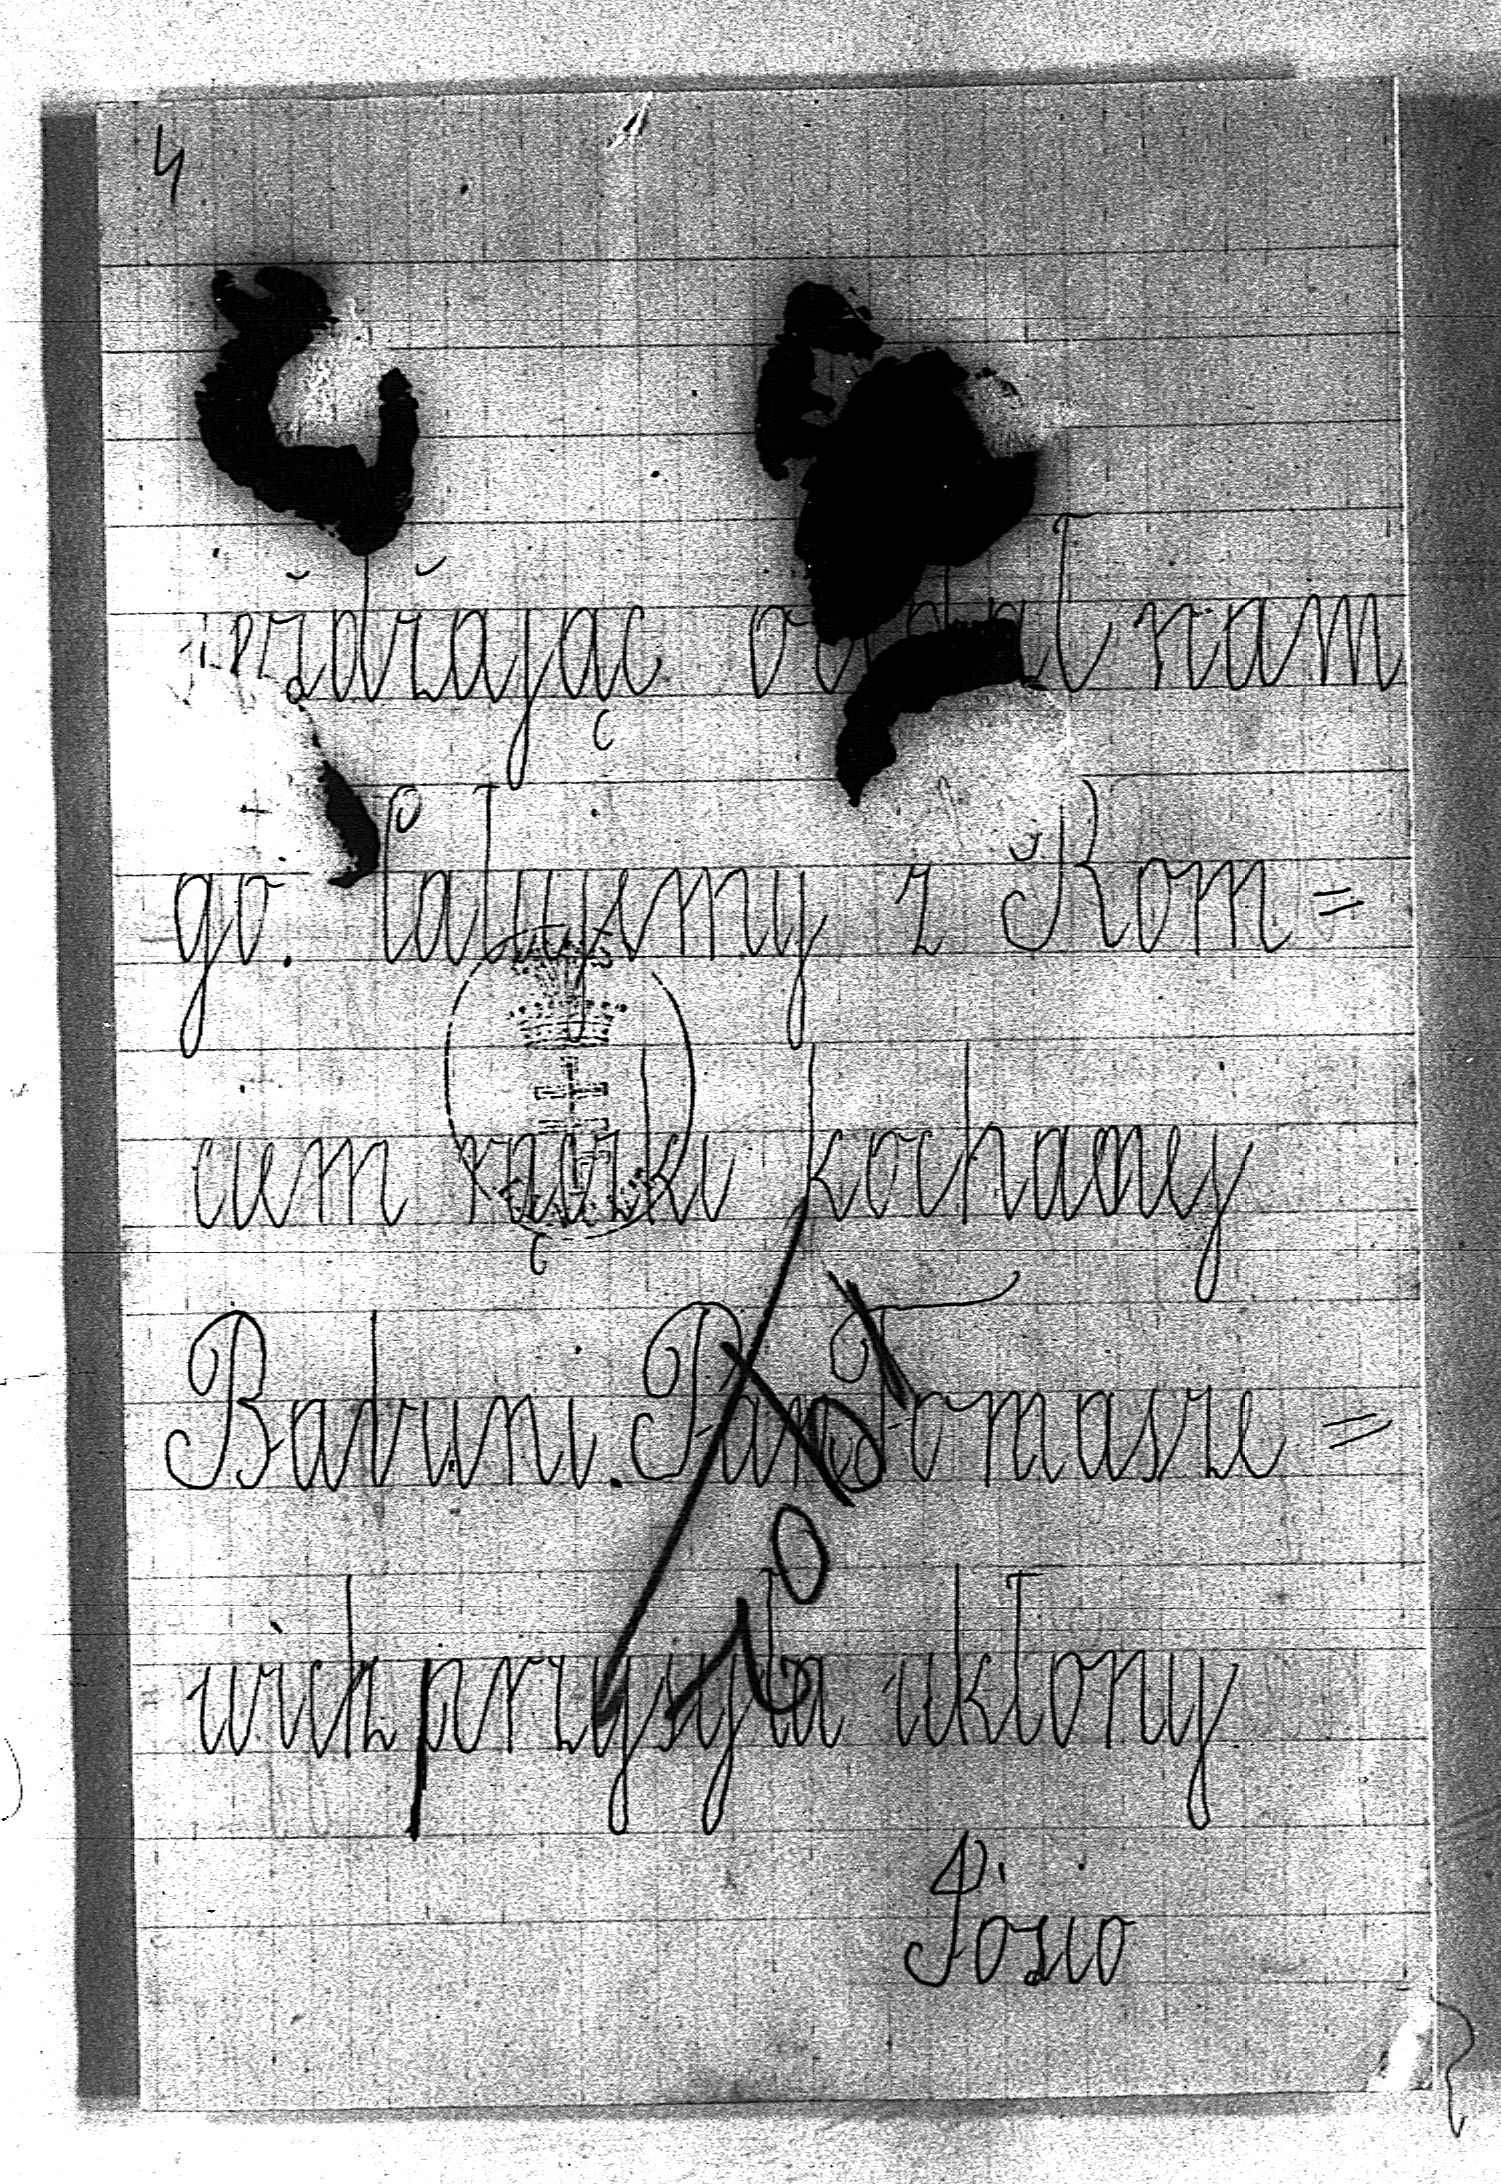 4
ieżdżając oddał nam
go. Całujemy z Rom=
ciem rączki kochanej
Babuni. Pan Tomasze=
wicz przysyła ukłony
Józio